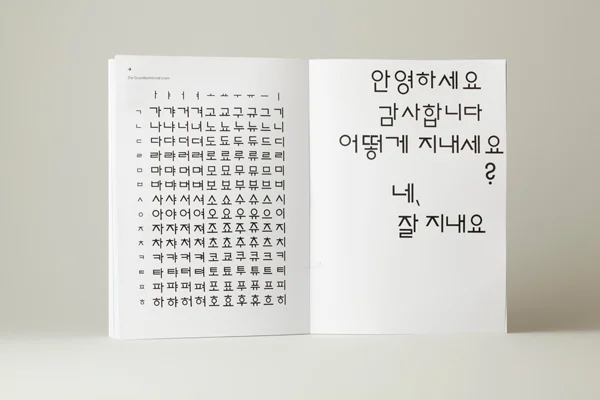 Die Grundkombinationen
ㅏ ㅑ ㅓ ㅕ ㅗ ㅛ ㅜ ㅠ ㅡ ㅣ
ㄱ 가 갸 거 겨 고 교 구 규 그 기
ㄴ 나 냐 너 녀 노 뇨 누 뉴 느 니
ㄷ 다 댜 더 뎌 도 됴 두 듀 드 디
ㄹ 라 랴 러 려 로 료 루 류 르 리
ㅁ 마 먀 머 며 모 묘 무 뮤 므 미
ㅂ 바 뱌 버 벼 보 뵤 부 뷰 브 비
ㅅ 사 샤 서 셔 소 쇼 수 슈 스 시
ㅇ 아 야 어 여 오 요 우 유 으 이
ㅈ 자 쟈 저 져 조 죠 주 쥬 즈 지
ㅊ 차 챠 처 쳐 초 쵸 추 츄 츠 치
ㅋ 카 캬 커 켜 코 쿄 쿠 큐 크 키
ㅌ 타 탸 터 텨 토 툐 투 튜 트 티
ㅍ 파 퍄 퍼 펴 포 표 푸 퓨 프 피
ㅎ 하 햐 허 혀 호 효 후 휴 흐 히
안영하세요
감사합니다
어떻게 지내세요
?
네,
잘 지내요